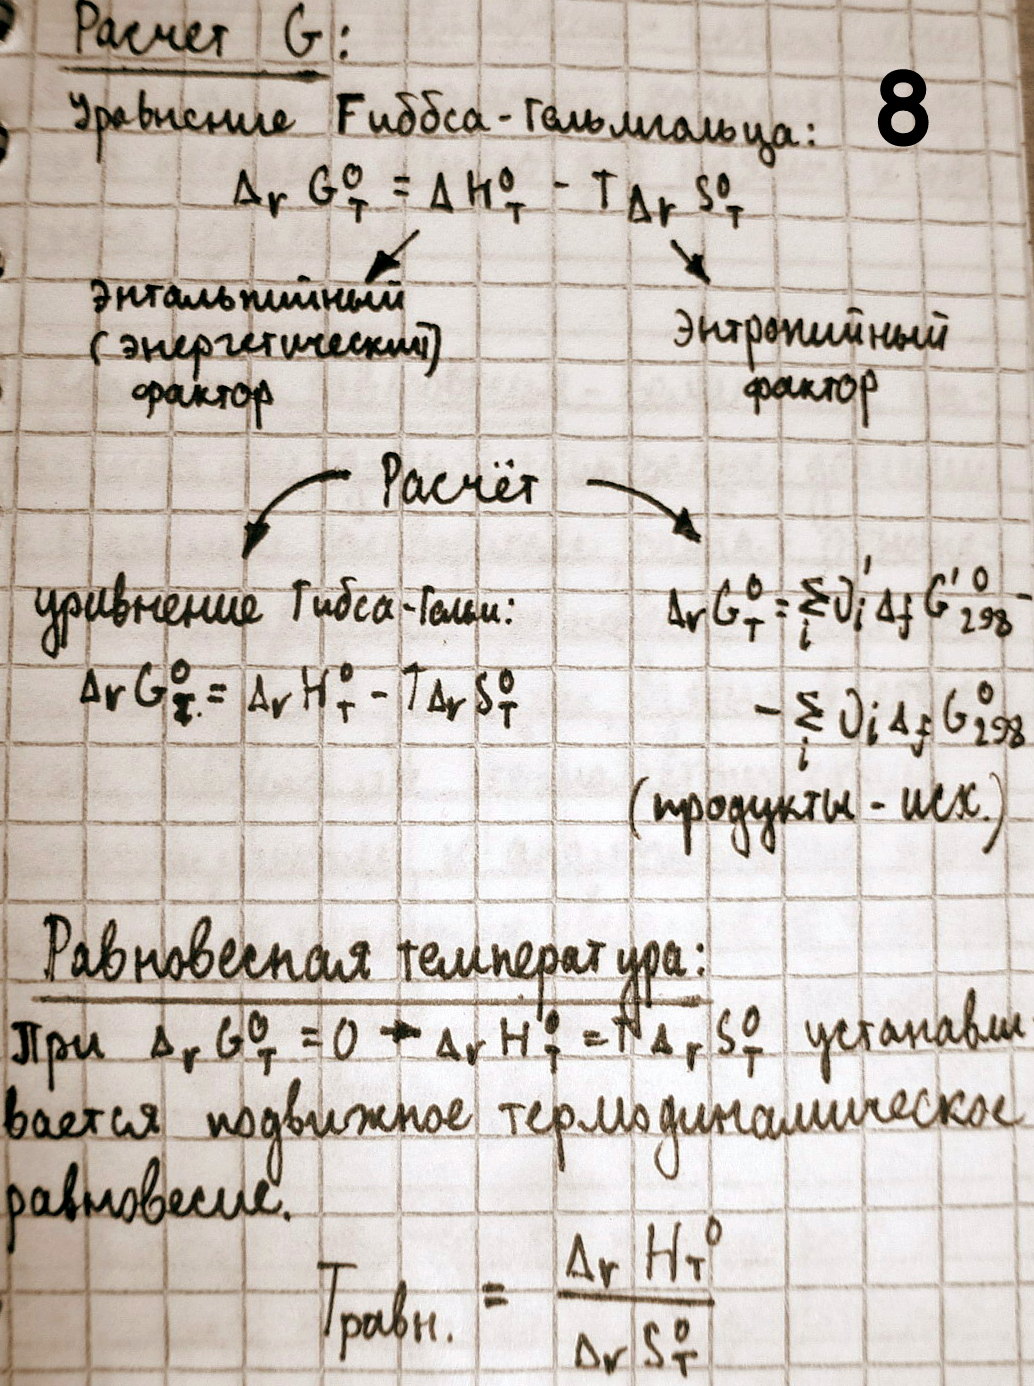 Расчет G:
8
Уравнение Гиббса-Гельмгольца:
Δr G⁰T = Δ H⁰T - T Δr S⁰T
Энтальпийный
(энергетический)
фактор
Энтропийный
фактор
Расчёт
уривнение Гибса-Гельм:
Δr G⁰T. = Δr H⁰T - T Δr S⁰T
Δr G⁰T = Σi νi' Δf G'⁰298 -
- Σi νi Δf G⁰298
(продукты - исх.)
Равновесная температура:
При Δr G⁰T = 0 → Δr H⁰T = T Δr S⁰T устанавли
вается подвижное термодинамическое
равновесие.
Tравн. = Δr HT⁰ / Δr S⁰T